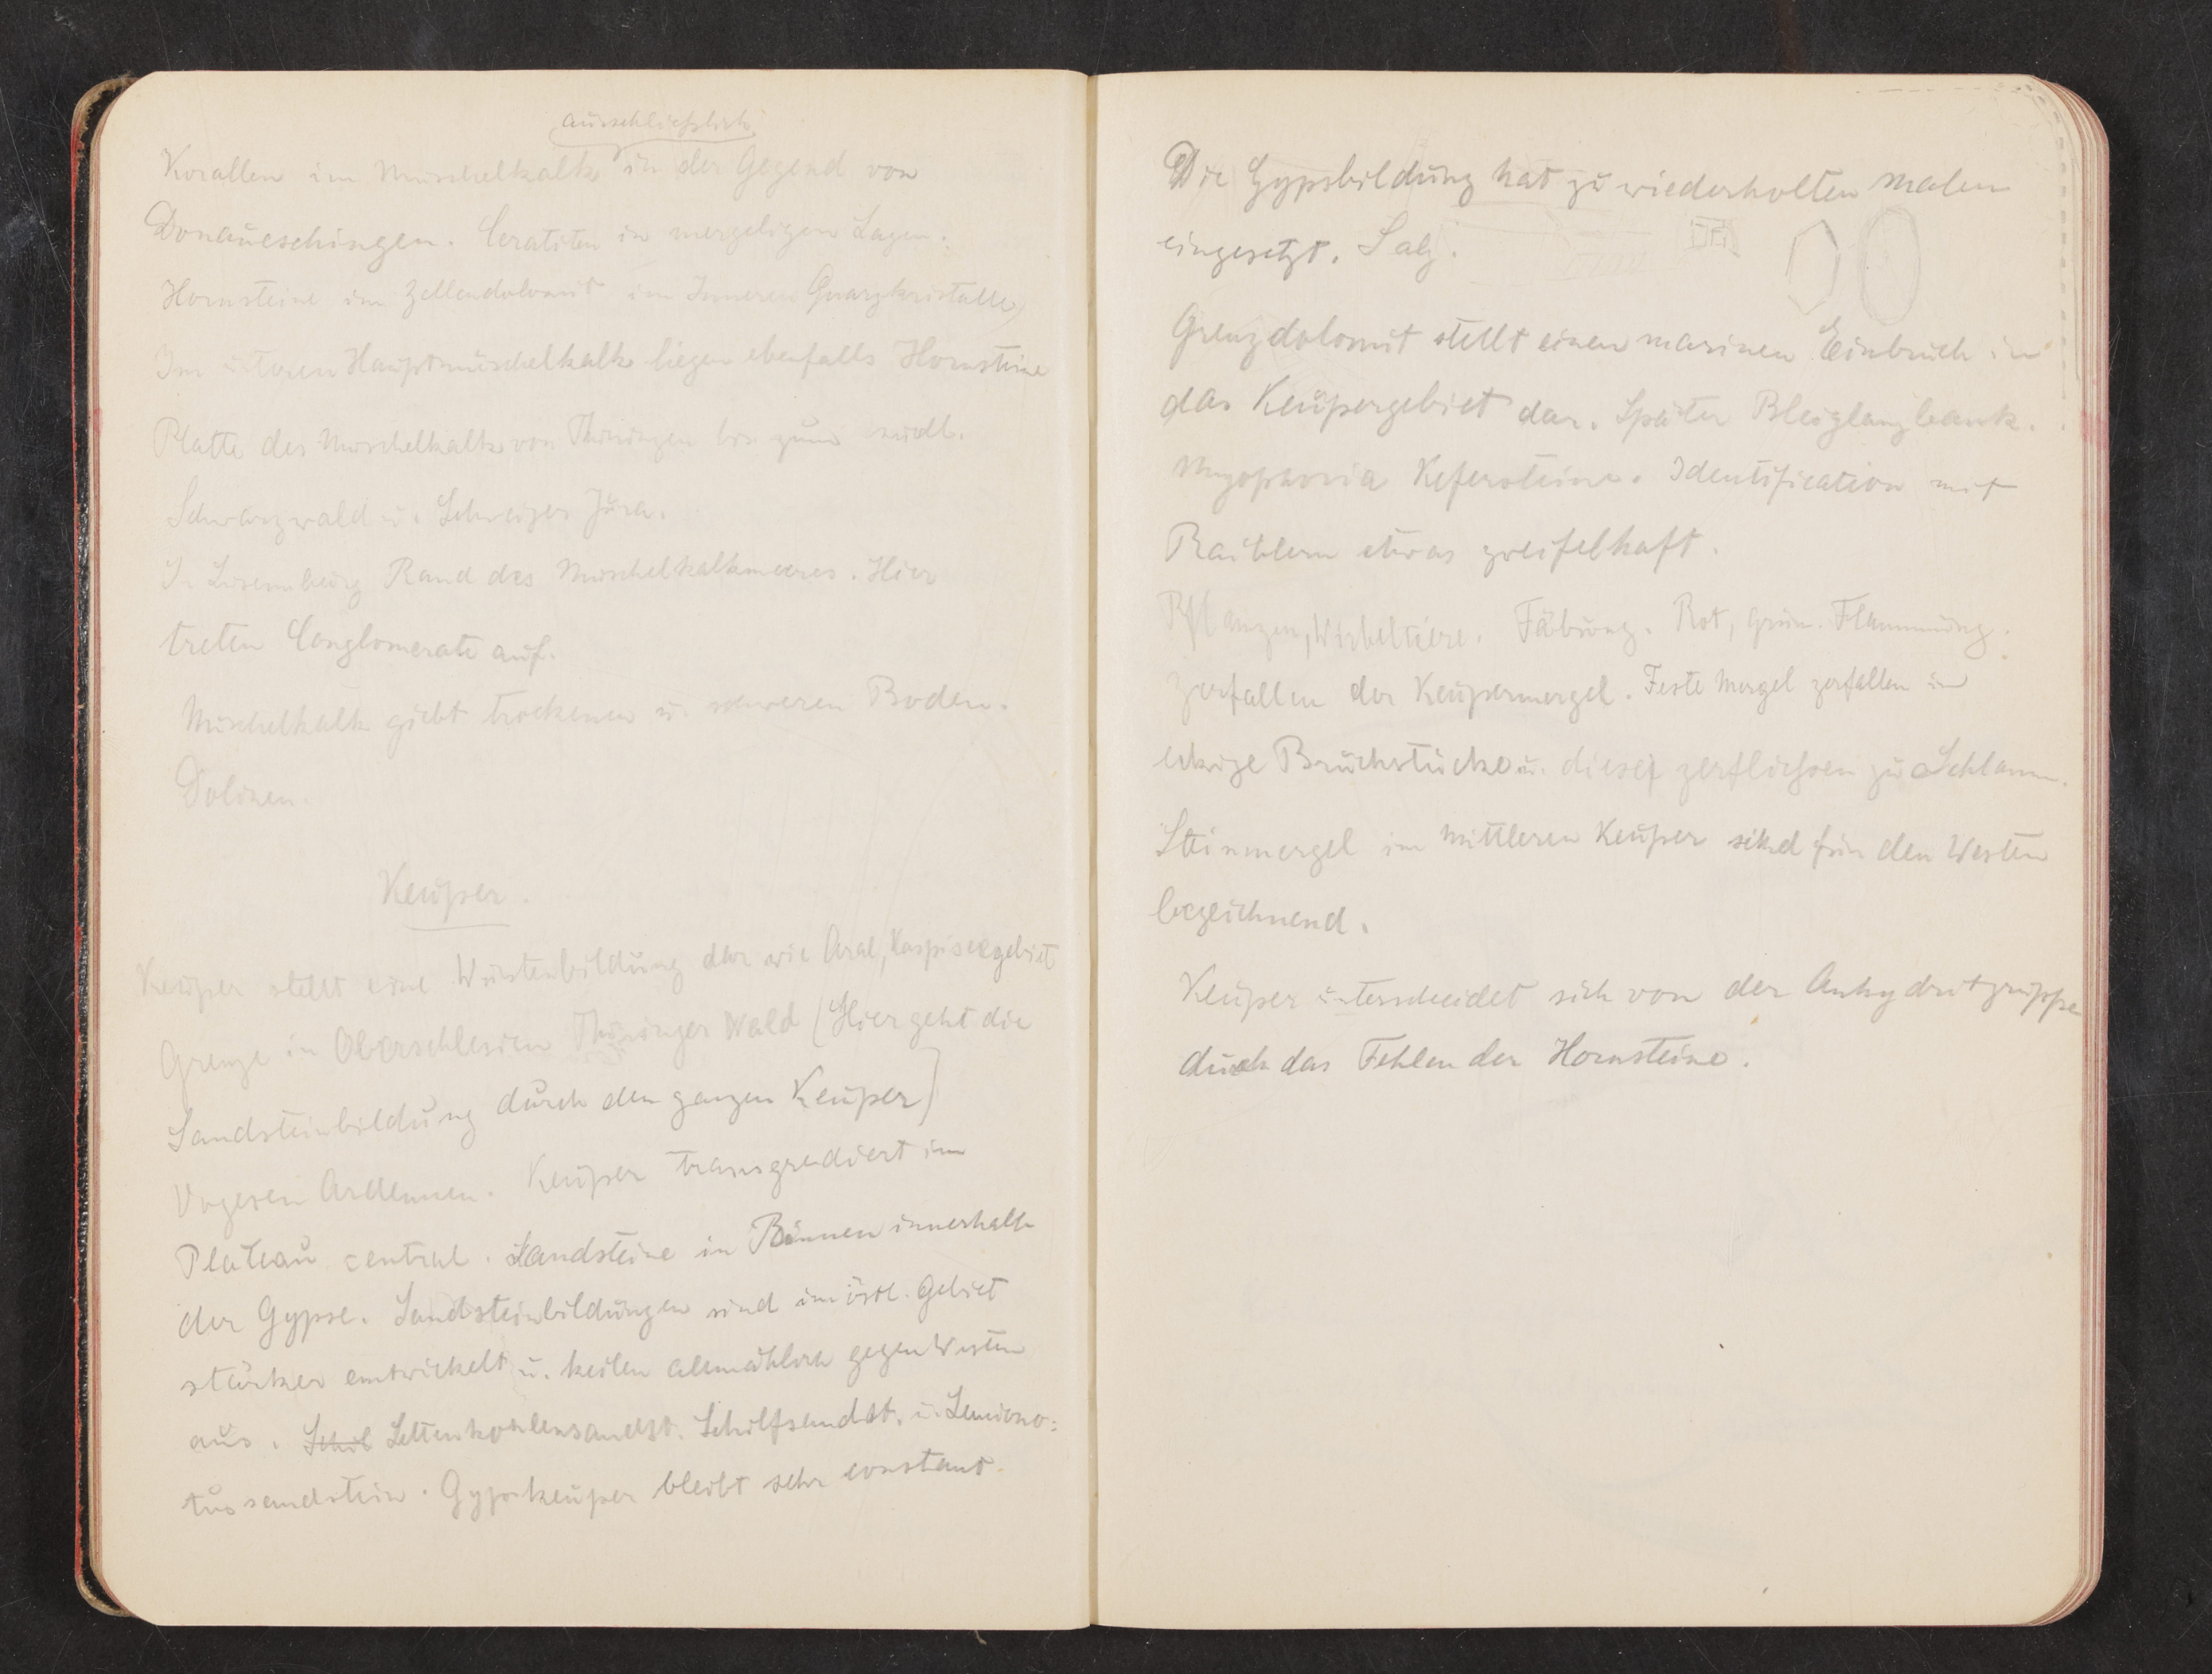 ausschließlich
Korallen im Muschelkalk in der Gegend von
Donaueschingen. Ceratiten in mergeligen Lagen.
Hornsteine im Zellendolomit im Inneren Quarzkristalle
Im unteren Hauptmuschelkalk liegen ebenfalls Hornsteine
Platte des Muschelkalks von Thüringen bis zum südl.
Schwarzwald u. Schweizer Jura.
In Luxemburg Rand des Muschelkalkmeeres. Hier
treten Conglomerate auf.
Muschelkalk giebt trockenen u. schweren Boden.
Dolinen.
Keuper.
Keuper stellt eine Wüstenbildung dar wie Aral, Kaspiseegebiet
Grenze in Oberschlesien Thüringer Wald (Hier geht die
Sandsteinbildung durch den ganzen Keuper)
Vogesen Ardennen. Keuper transgrediert im
Plateau central. Sandsteine in Rinnen innerhalb
der Gypse. Sandsteinbildungen sind im östl. Gebiet
stärker entwickelt u. keilen allmählich gegen Westen
aus. Schil Lettenkohlensandst. Schilfsandst. u. Semiono-
tussandstein. Gypskeuper bleibt sehr constant.
Die Gypsbildung hat zu wiederholten Malen
eingesetzt. Salz.
Grenzdolomit stellt einen marinen Einbruch in
das Keupergebiet dar. Später Bleiglanzbank.
Myophoria Kefersteini. Identification mit
Raiblern etwas zweifelhaft.
Pflanzen, Wirbeltiere. Fäbung. Rot, Grün. Flammung.
Zerfallen der Keupermergel. Feste Mergel zerfallen in
eckige Bruchstücke u. diese zerfließen zu Schlamm.
Steinmergel im mittleren Keuper sind für den Westen
bezeichnend.
Keuper unterscheidet sich von der Anhydritgruppe
durch das Fehlen der Hornsteine.